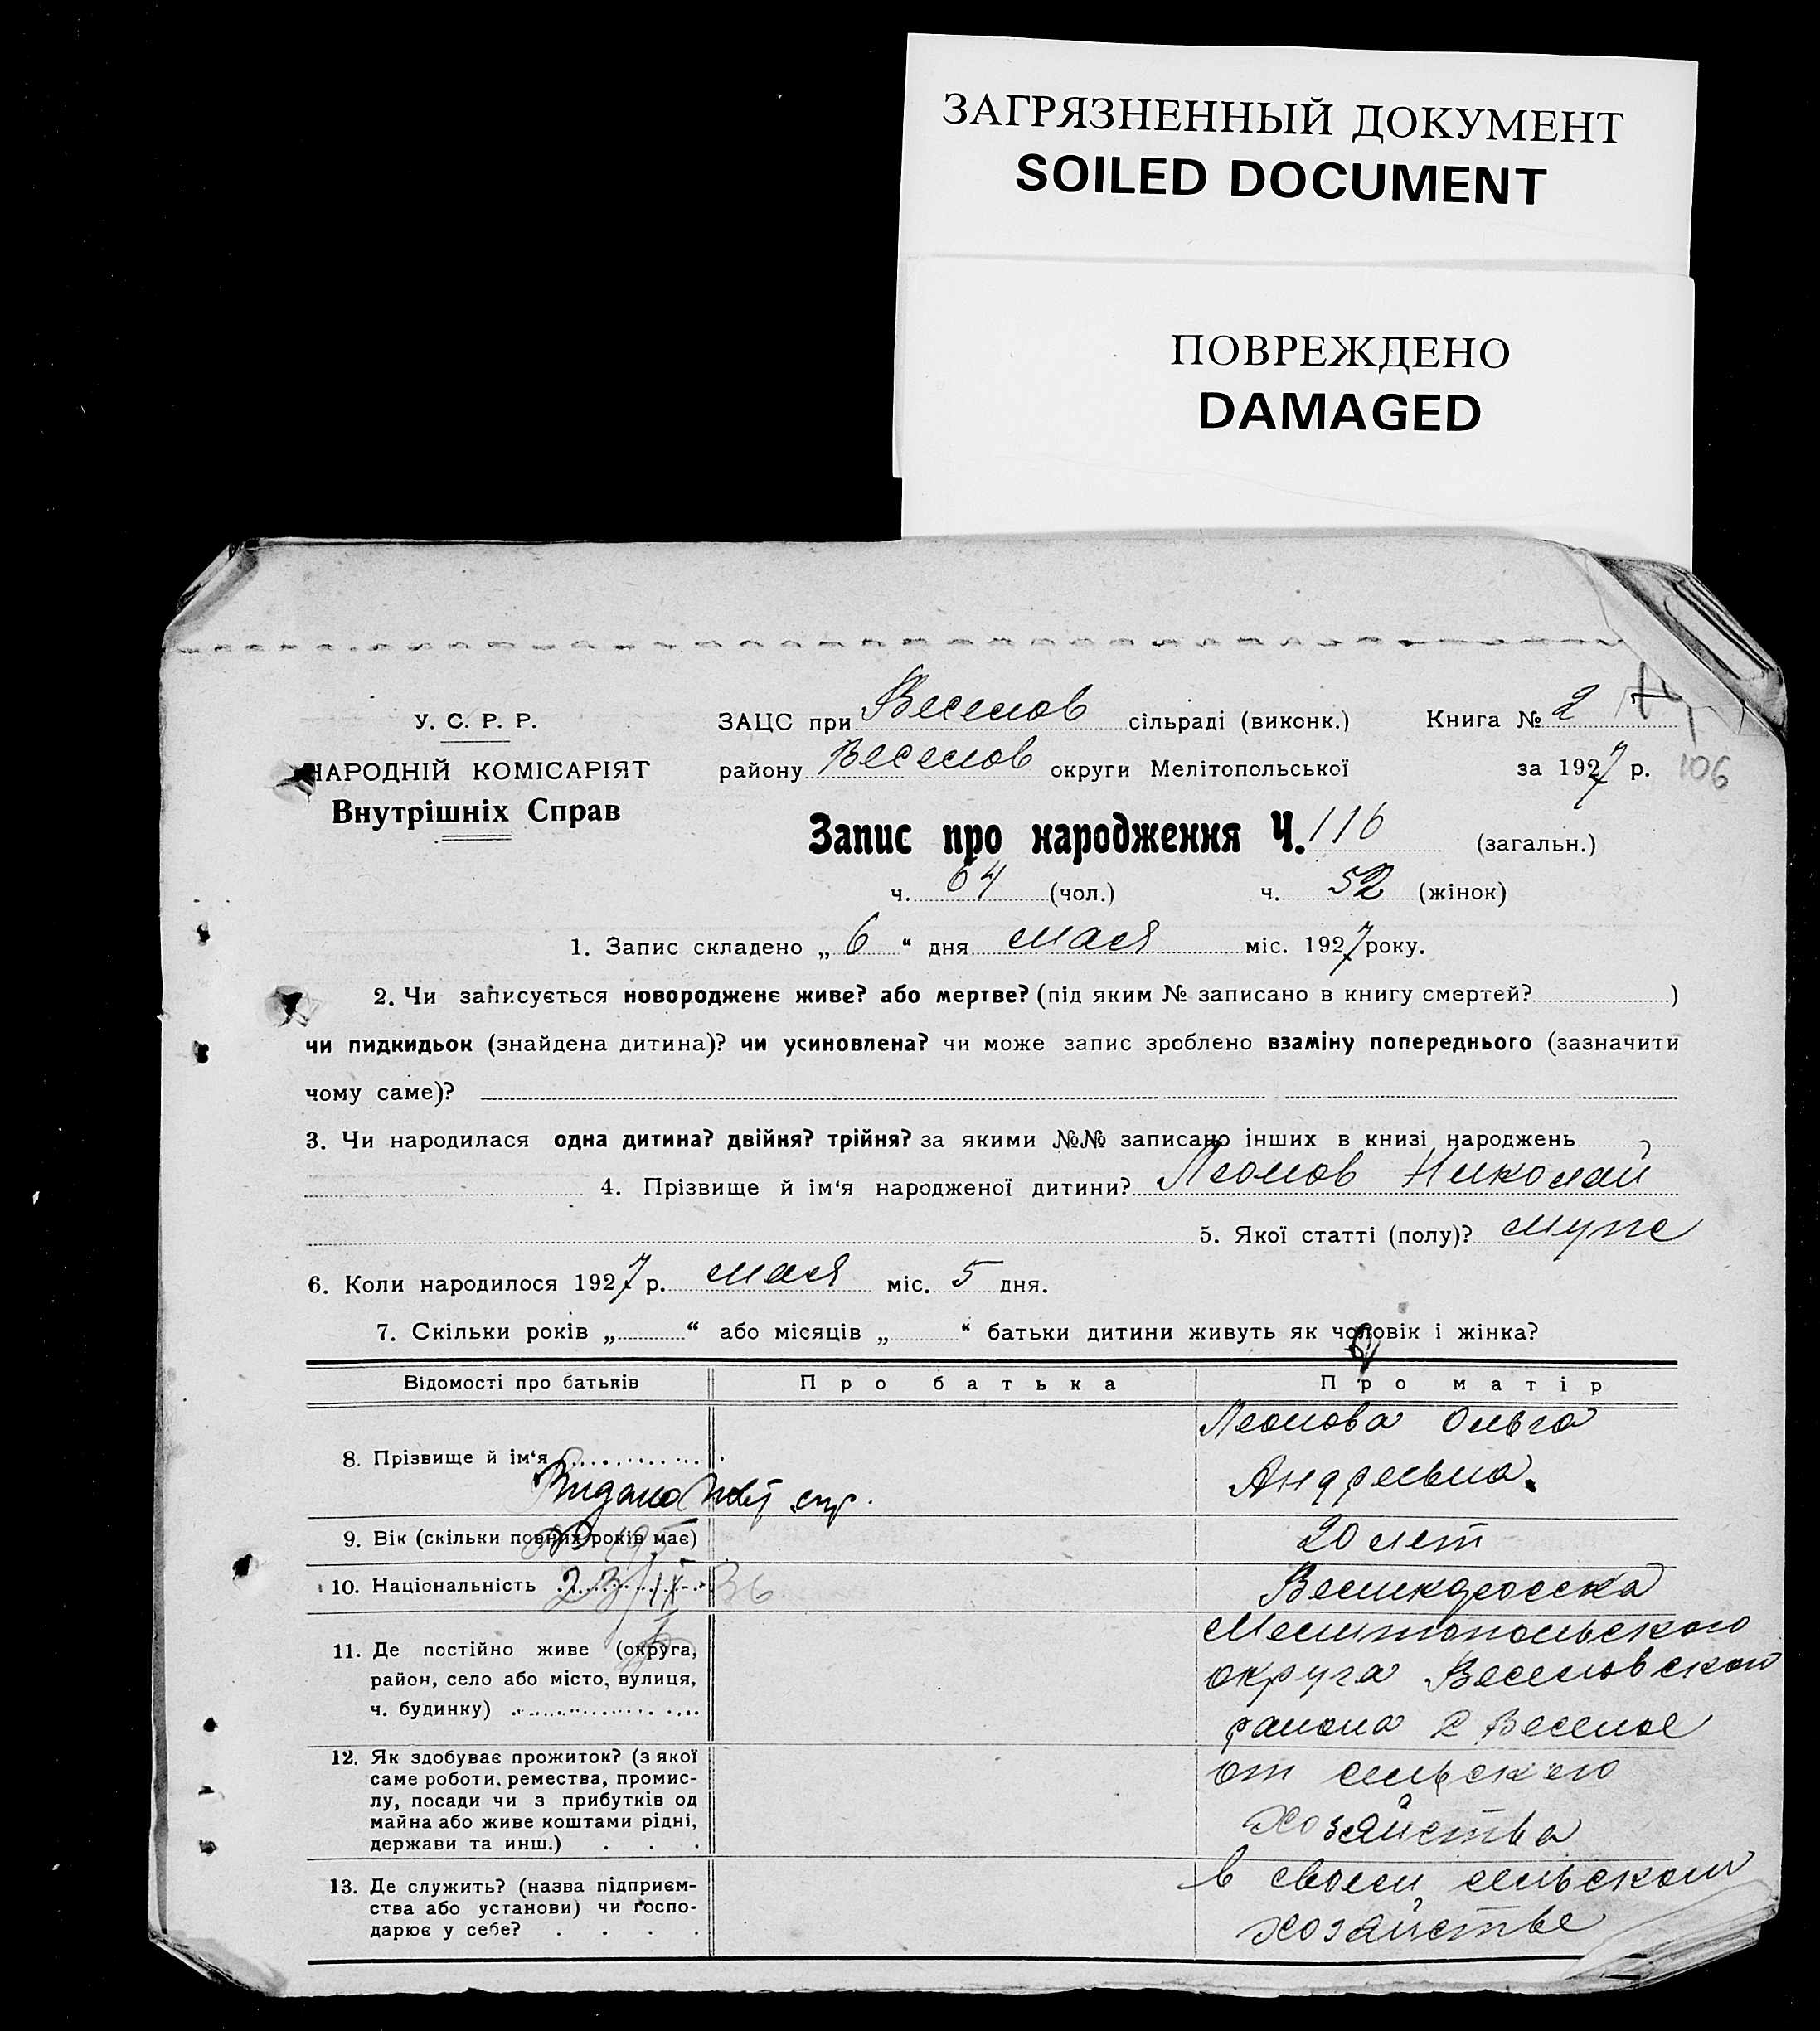 ЗАГРЯЗНЕННЫЙ ДОКУМЕНТ
SOILED DOCUMENT
ПОВРЕЖДЕНО
DAMAGED
У. С. Р. Р.
НАРОДНІЙ КОМІСАРІЯТ
Внутрішніх Справ
ЗАЦС при Веселов сільраді (виконк.) Книга № 2
району Веселов округи Мелітопольської за 1927 р. 106
Запис про народження Ч. 116 (загальн.)
ч. 64 (чол.) ч. 52 (жінок)
1. Запис складено „ 6 “ дня мая міс. 1927 року.
2. Чи записується новороджене живе? або мертве? (під яким № записано в книгу смертей? )
чи пидкидьок (знайдена дитина)? чи усиновлена? чи може запис зроблено взаміну попереднього (зазначити
чому саме)?
3. Чи народилася одна дитина? двійня? трійня? за якими №№ записано інших в книзі народжень
4. Прізвище й ім‘я народженої дитини? Леонов Николай
5. Якої статті (полу)? муж
6. Коли народилося 1927 р. мая міс. 5 дня.
7. Скільки років „ “ або місяців „ “ батьки дитини живуть як чоловік і жінка?
Відомості про батьків Про батька Про матір
8. Прізвище й ім‘я Леонова Ольга
Андреевна.
Видано
9. Вік (скільки повних років має) 20 лет
10. Національність 23/IX-36 Великоросска
11. Де постійно живе (округа,
район, село або місто, вулиця,
ч. будинку)
Мелитопольского
округа Веселовского
района с Веселое
12. Як здобуває прожиток? (з якої
саме роботи, ремества, промис-
лу, посади чи з прибутків од
майна або живе коштами рідні,
держави та инш.)
от сельского
хозяйства
13. Де служить? (назва підприєм-
ства або установи) чи госпо-
дарює у себе?
в своем сельском
хозяйстве